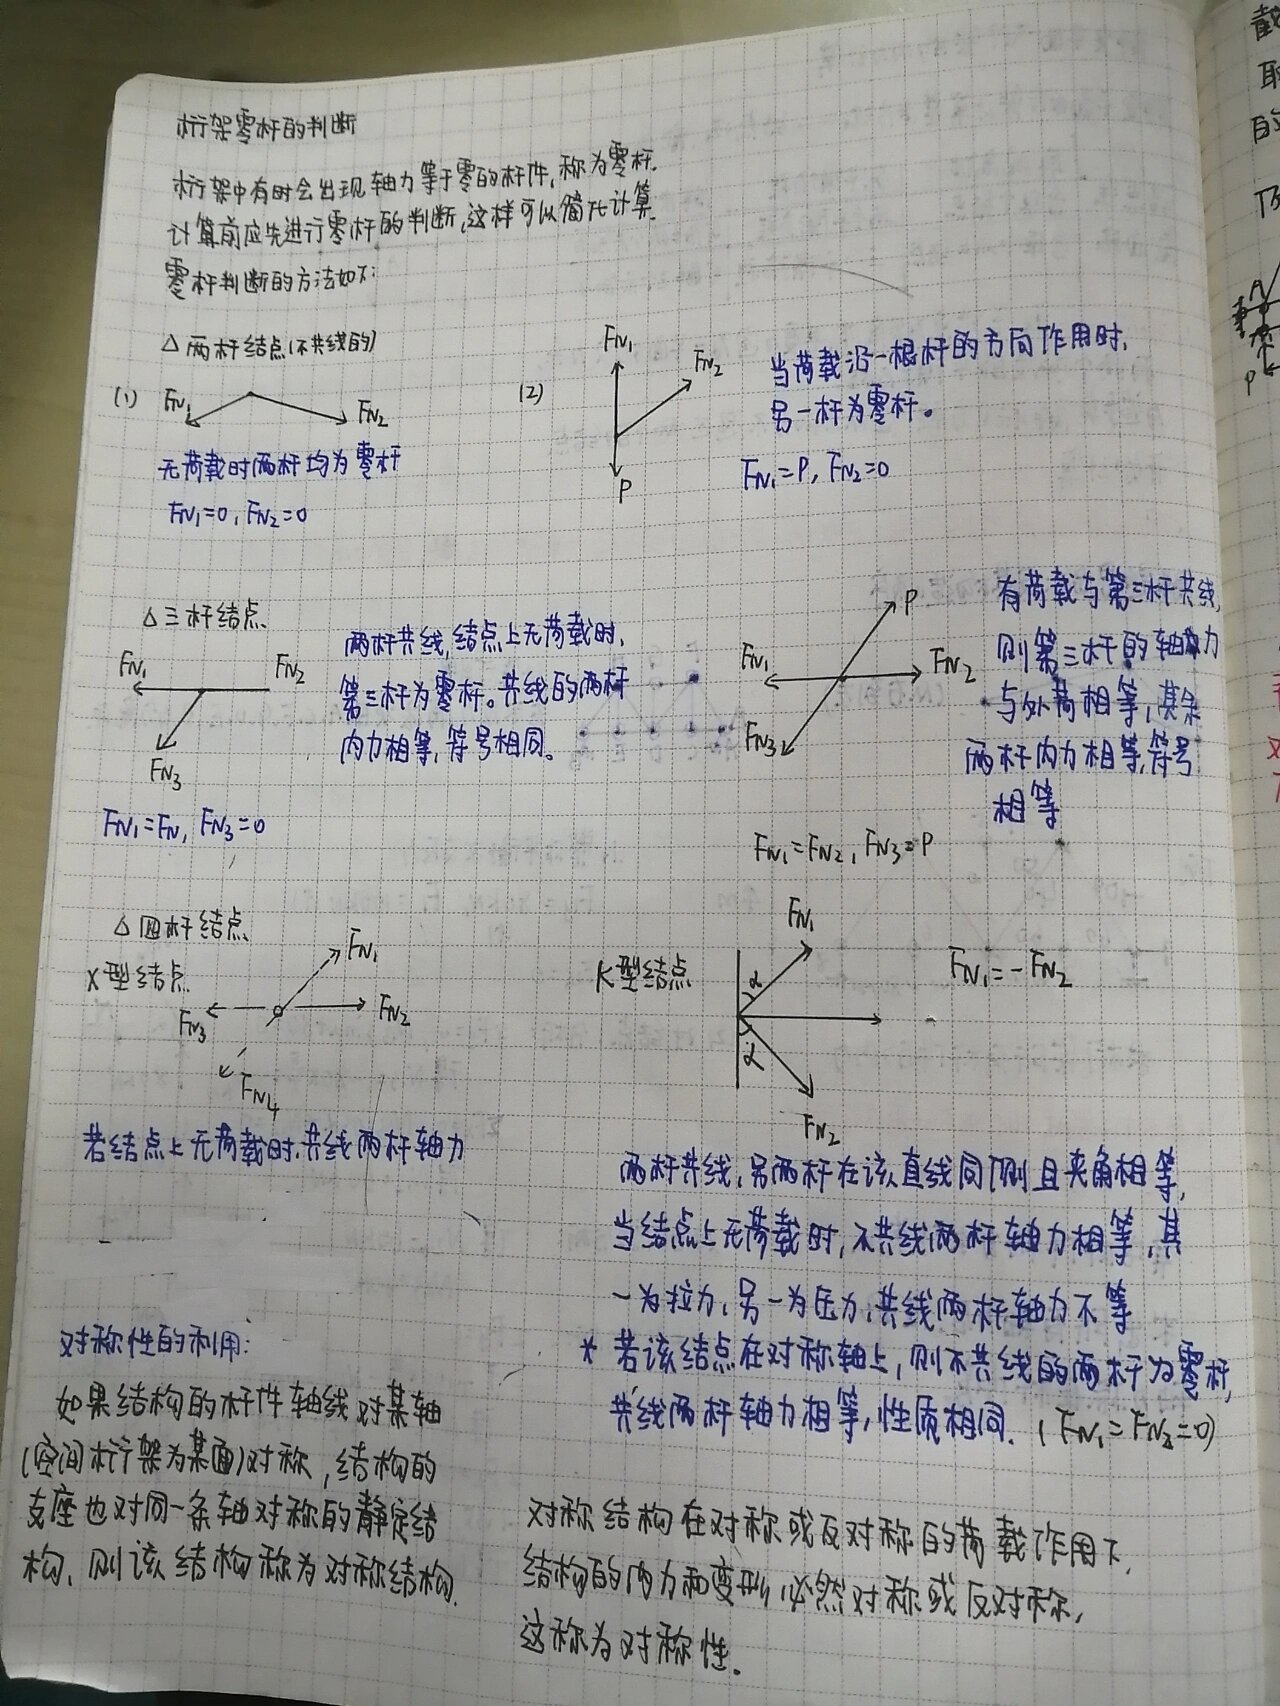 桁架零杆的判断
桁架中有时会出现轴力等于零的杆件,称为零杆.
计算前应先进行零杆的判断,这样可以简化计算.
零杆判断的方法如下:
△两杆结点(不共线的)
(1) FN1 FN2
无荷载时两杆均为零杆
FN1=0, FN2=0
(2) FN1 FN2 P
当荷载沿一根杆的方向作用时,
另一杆为零杆。
FN1=P, FN2=0
△三杆结点
FN1 FN2
FN3
两杆共线,结点上无荷载时,
第三杆为零杆。共线的两杆
内力相等,符号相同。
FN1=FN, FN3=0
P
FN1 FN2
FN3
有荷载与第三杆共线,
则第三杆的轴力
与外荷相等,其余
两杆内力相等,符号
相等
FN1=FN2, FN3=P
△四杆结点
X型结点
FN1
FN3 FN2
FN4
若结点上无荷载时,共线两杆轴力
K型结点
FN1
α
α
FN2
FN1=-FN2
两杆共线,另两杆在该直线同侧且夹角相等,
当结点上无荷载时,不共线两杆轴力相等,其
一为拉力,另一为压力,共线两杆轴力不等
* 若该结点在对称轴上,则不共线的两杆为零杆,
共线两杆轴力相等,性质相同.(FN1=FN2=0)
对称性的利用:
如果结构的杆件轴线对某轴
(空间桁架为某面)对称,结构的
支座也对同一条轴对称的静定结
构,则该结构称为对称结构.
对称结构在对称或反对称的荷载作用下,
结构的内力和变形必然对称或反对称,
这称为对称性.
截
取
的
P